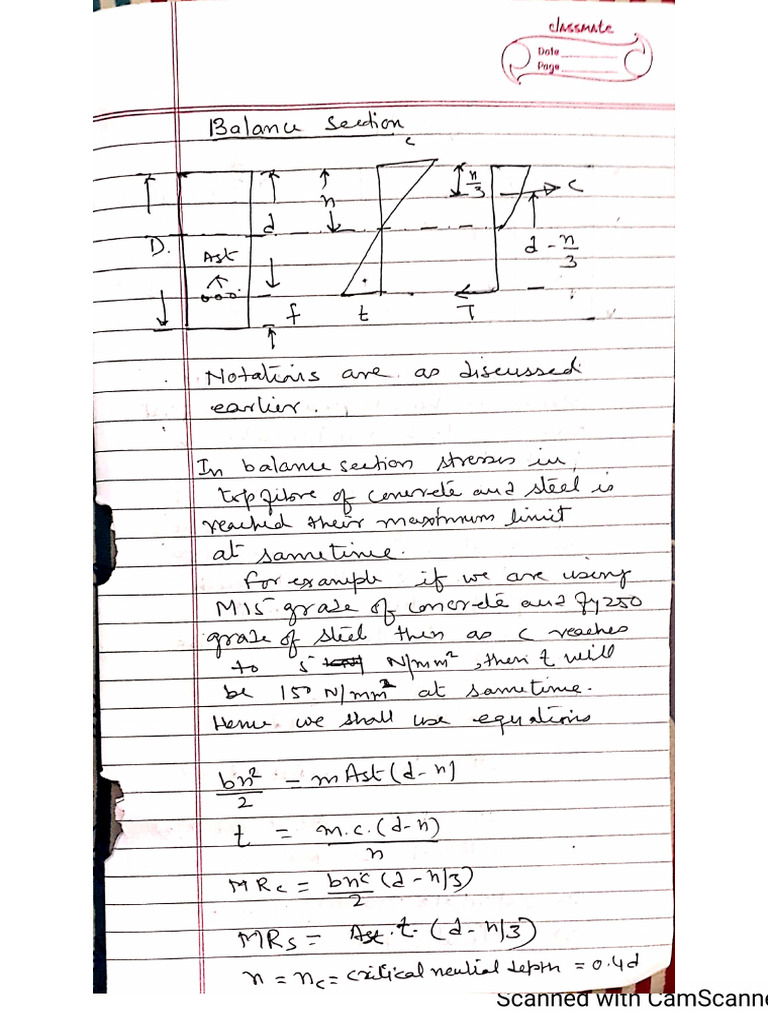 classmate
Date
Page
Balance section
c
n/3
C
n
d
D.
Ast
d - n/3
f
t
T
Notations are as discussed
earlier.
In balance section stresses in
top fibre of concrete and steel is
reached their maximum limit
at sametime.
For example if we are using
M15 grade of concrete and Fy250
grade of steel then as c reaches
to 5 N/mm², then t will
be 150 N/mm² at sametime.
Hence we shall use equations
bn²/2 = mAst(d-n)
t = m.c.(d-n)/n
MRc = bnc/2 (d-n/3)
MRs = Ast.t.(d-n/3)
n = nc = critical neutral depth = 0.4d
Scanned with CamScanne